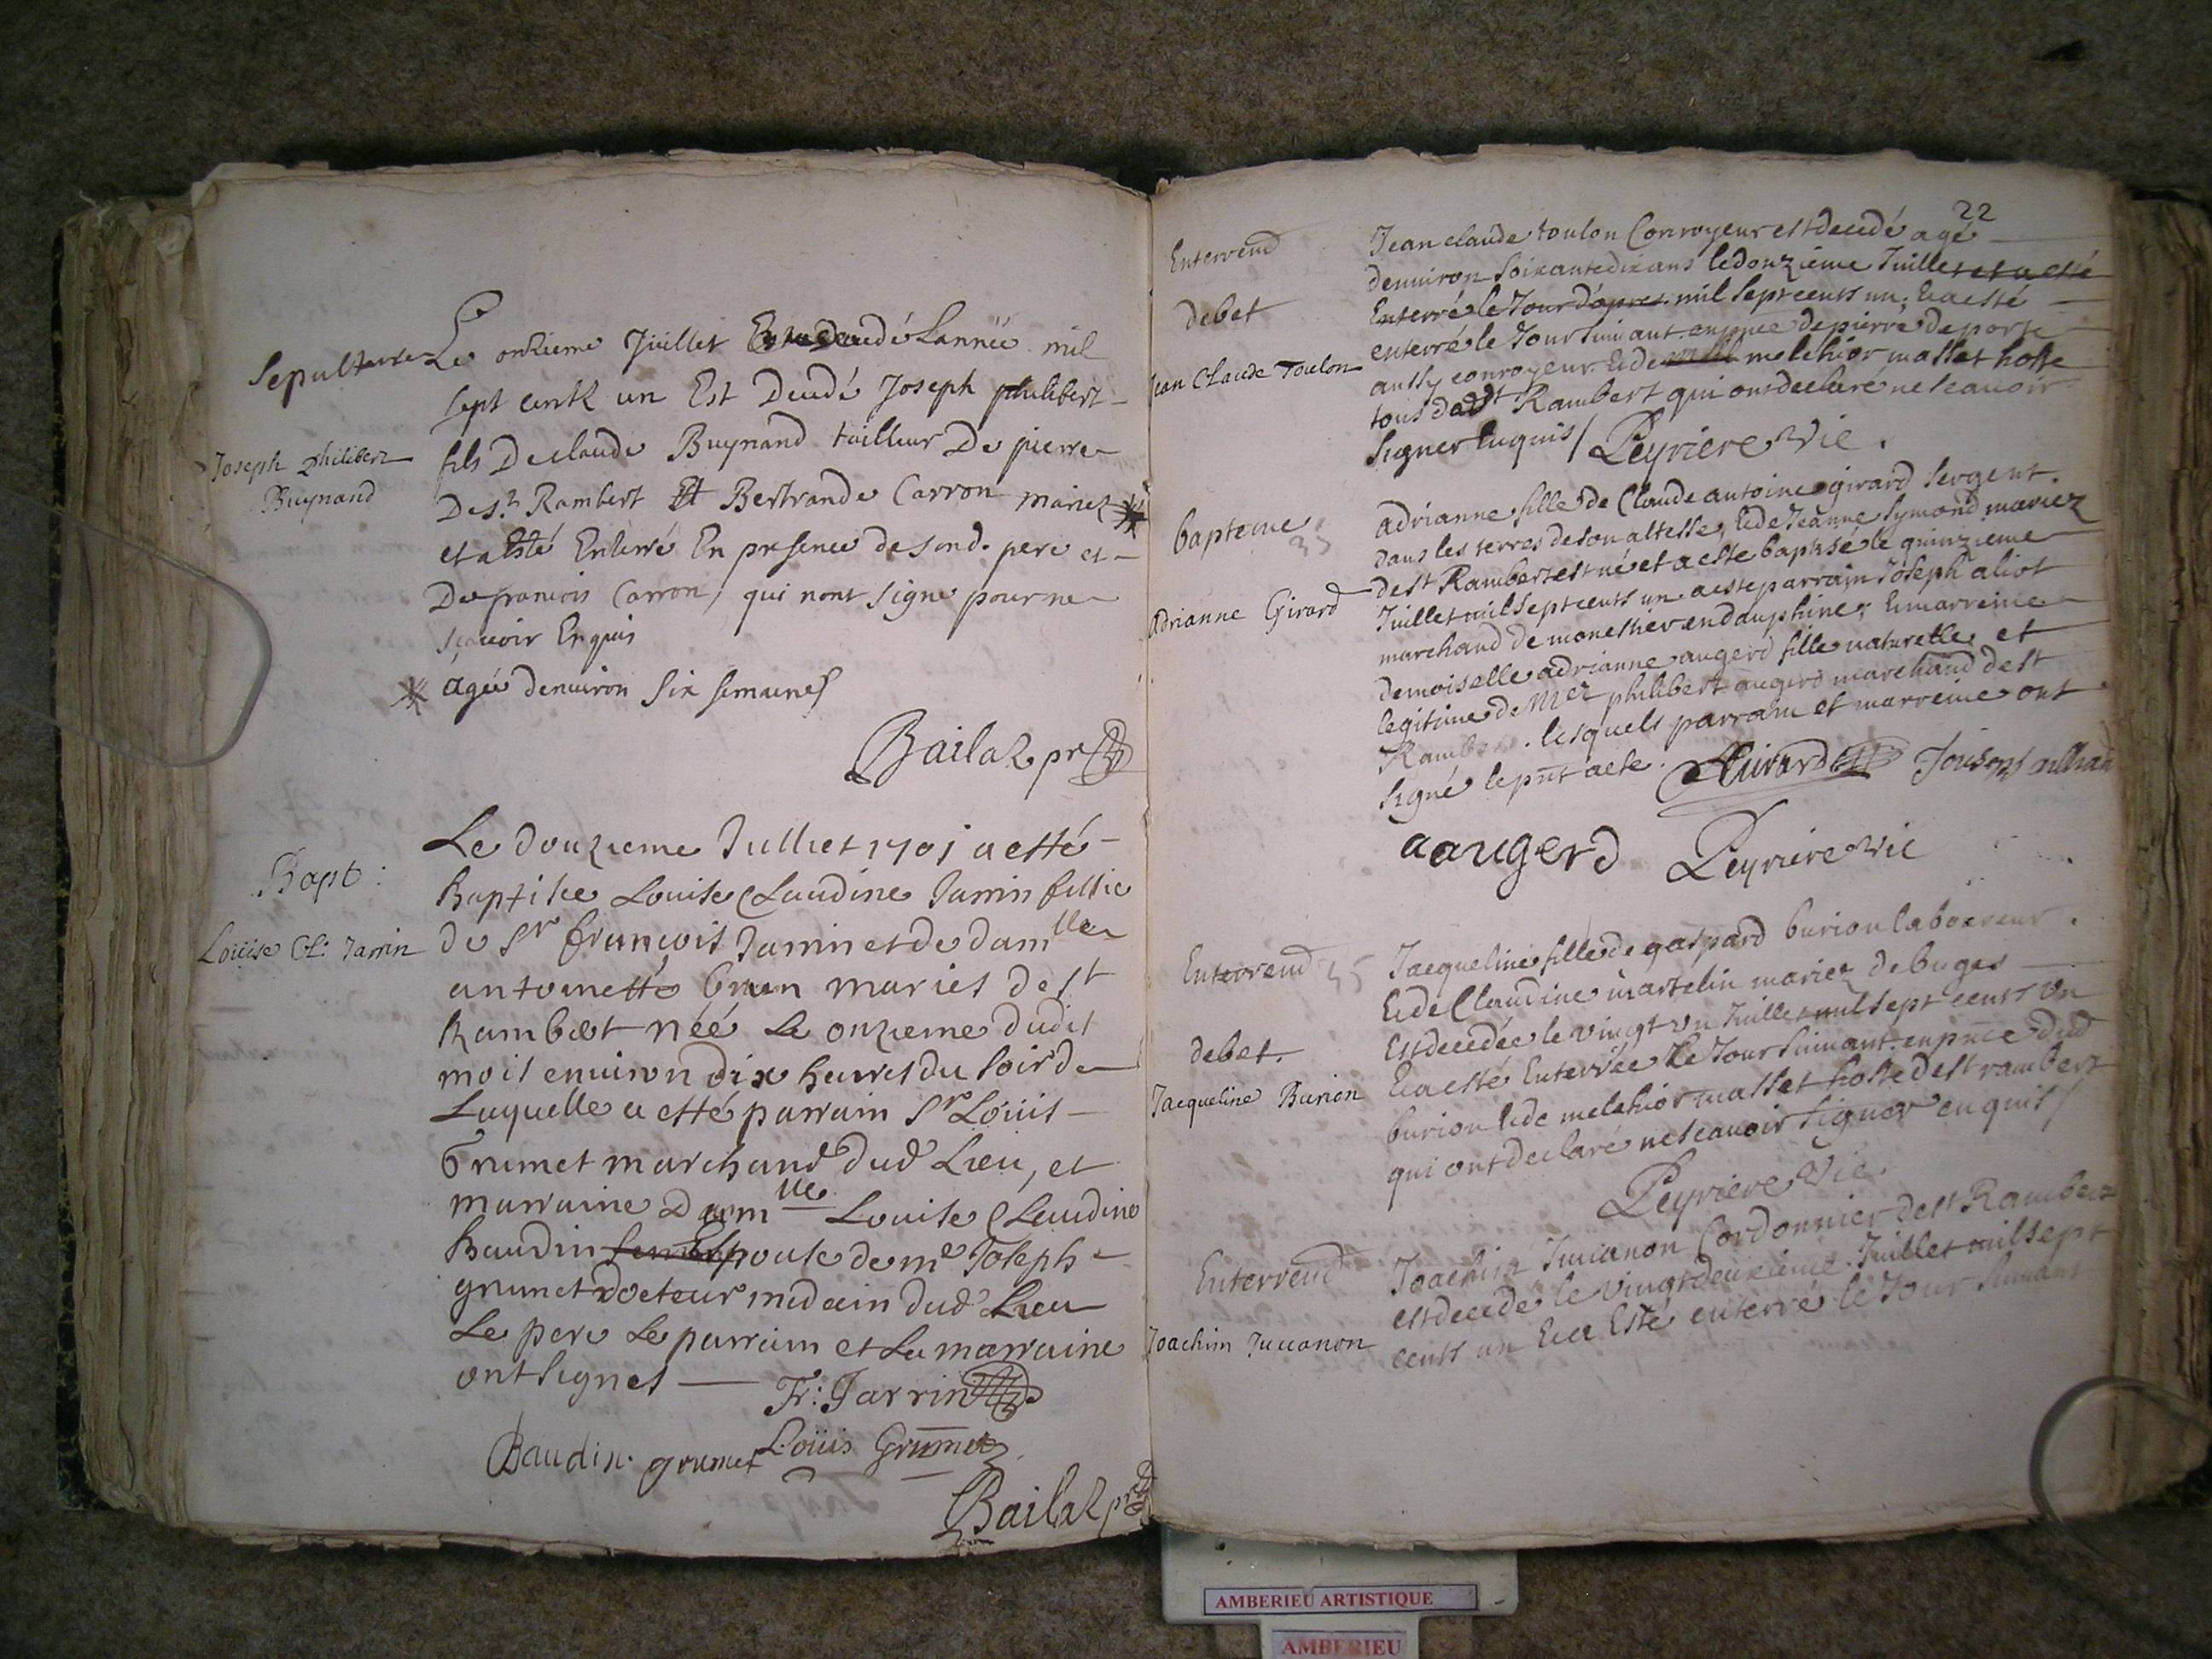 Sepulture
Joseph philibert
Buynand
Le onzieme Juillet Lannee mil
sept centz un Est Decedé Joseph philibert
fils De claude Buynand tailleur De pierre
De st Rambert Et Bertrande Carron mariez *
et a Esté Enterré En presence de sond. pere et
De francois Carron, qui nont signe pour ne
sçavoir Enquis
* agée denuiron six semaines
Bailaz pr
Bapt:
Loüise Cl: Jarrin
Le douzieme Julliet 1701 a esté
Baptisee Louise Claudine Jarrin fillie
de Sr francois Jarrin et de dam lle
antoinette Brun maries de st
Rambert néé Le onzieme dudit
mois enuiron dix heures du soir de
Laquelle a etté parrain Sr Loüis
Grumet marchand dud Lieu, et
marraine Dam lle Louise Claudine
Baudin Espouse de me Joseph
grumet docteur medecin dud Lieu
Le pere Le parrain et La marraine
ont signes
Fr: Jarrin
Baudin. grumet Loüis Grumet
Bailaz pr
22
Enterrend
debet
Jean Claude Toulon
Jean claude toulon Conroyeur est decedé agé
denuiron soixante dix ans le douzieme Juillet et a esté
Enterré le Jour d'apres mil sept cents un; Et a esté
enterré le Jour suiuant en pnce de pierre de porte
aussy conroyeur Et de melchior masset hoste
tous dudt st Rambert qui ont declaré ne scauoir
signer Enquis / Peyriere Vic.
bapteme 35
Adrianne Girard
adrianne fille de Claude antoine girard sergent
dans les terres de son altesse, Et de Jeanne symond mariez
de st Rambert est né et a este baptisé le quinzieme
Juillet mil sept cents un a este parrain Joseph aliot
marchand de monestier en dauphine; Et marreine
demoiselle adrianne augerd fille naturelle et
legitime de Mez philibert augerd marchand de st
Rambert. lesquels parrain et marreine ont
signé le pnt acte. Girard
aaugerd Peyriere vic
Enterrend 35
debet.
Jacqueline Burion
Jacqueline fille de gaspard burion laboureur
Et de Claudine martelin mariez de buges
Est decedée le vingt un Juillet mil sept cents un
Et a esté Enterrée le Jour suiuant. en pnce dud
burion Et de melchior masset hoste de st rambert
qui ont declaré ne scauoir signer enquis /
Peyriere Vic.
Enterrend
Joachim Juuanon
Joachim Juuanon Cordonnier de st Rambert
est decedé le vingt deuxieme Juillet mil sept
cents un Et a Esté enterré le Jour suiuant
AMBERIEU ARTISTIQUE
AMBERIEU